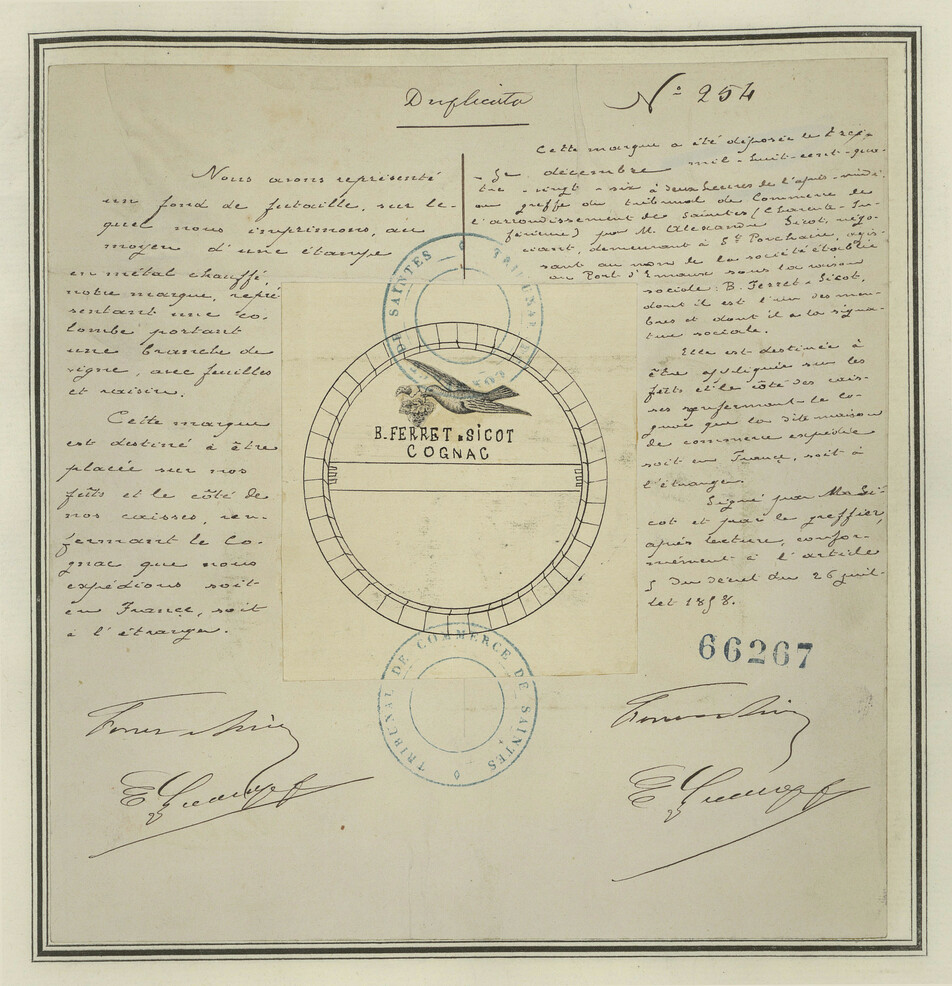 Duplicata
N° 254
Nous avons représenté
un fond de futaille, sur le-
quel nous imprimons, au
moyen d'une étampe
en métal chauffé,
notre marque, repré
sentant une co-
lombe portant
une branche de
vigne, avec feuilles
et raisin.
Cette marque
est destiné à être
placée sur nos
fûts et le côté de
nos caisses, ren-
fermant le Co-
gnac que nous
expédions soit
en France, soit
à l'étranger.
Cette marque a été déposée le
décembre mil-huit-cent-qua-
tre-vingt-six à deux heures de l'après-midi
au greffe du tribunal de Commerce de
l'arrondissement de Saintes (Charente-In-
férieure) par M. Alexandre Sicot, négo-
ciant, demeurant à St Porchaire, agis-
sant au nom de la société établie
au Port d'Envaux sous la raison
sociale: B. Ferret & Sicot,
dont il est l'un des mem-
bres et dont il a la signa-
ture sociale.
Elle est destinée à
être appliquée sur les
fûts et le côté des cais-
ses renfermant le Co-
gnac que la dite maison
de commerce expédie
soit en France, soit à
l'étranger.
Signé par Mr Si-
cot et par le greffier,
après lecture, confor-
mément à l'article
5 du décret du 26 juil-
let 1858.
B. FERRET & SICOT
COGNAC
66267
TRIBUNAL DE COMMERCE DE SAINTES